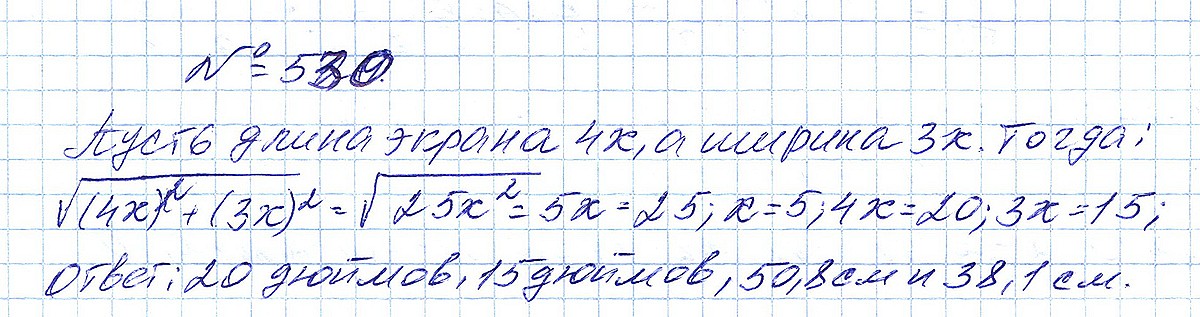 № 530.
Пусть длина экрана 4x, а ширина 3x. Тогда:
√(4x)²+(3x)² = √25x² = 5x = 25; x=5; 4x=20; 3x=15;
Ответ: 20 дюймов, 15 дюймов, 50,8 см и 38,1 см.